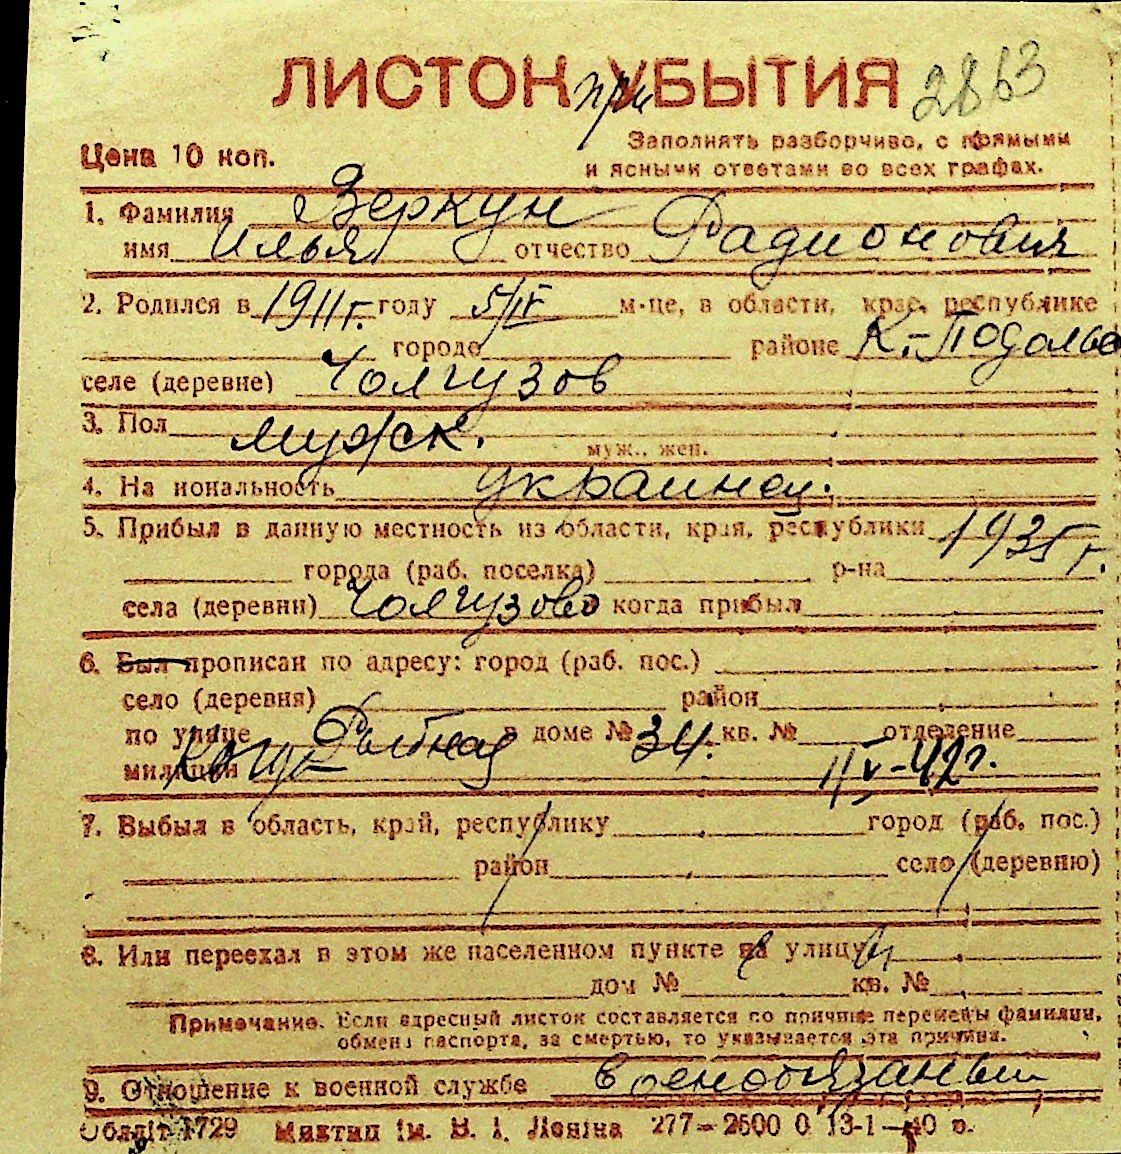 ЛИСТОК при УБЫТИЯ 2863
Цена 10 коп. Заполнять разборчиво, с прямыми
и ясными ответами во всех графах.
1. Фамилия Зеркун
имя Илья отчество Радионович
2. Родился в 1911 г. году 5/IV м-це, в области, крае, республике
городе районе К.-Подольс
селе (деревне) Чолгузов
3. Пол мужск.
муж., жен.
4. На иональность украинец.
5. Прибыл в данную местность из области, края, республики 1935 г.
города (раб. поселка) р-на
села (деревни) Чолгузово когда прибыл
6. Был прописан по адресу: город (раб. пос.)
село (деревня) район
по улице Рыбная в доме № 34. кв. № отделение
милиции
7. Выбыл в область, край, республику город (раб. пос.)
район село (деревню)
8. Или переехал в этом же населенном пункте на улицу
дом № кв. №
Примечание. Если адресный листок составляется по причине перемены фамилии,
обмена паспорта, за смертью, то указывается эта причина.
9. Отношение к военной службе военообязаный
Облліт 1729 Миктип ім. В. І. Леніна 277—2500 0 13-1—40 р.